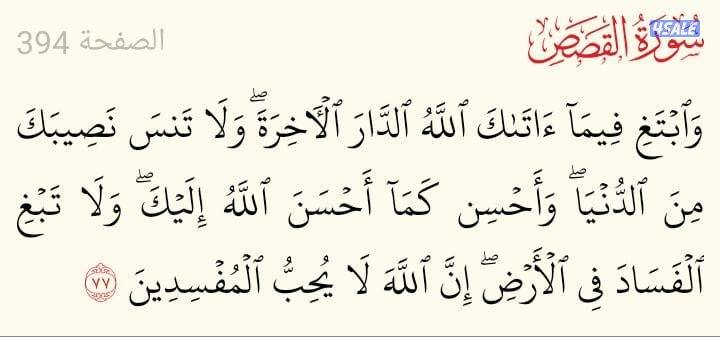 سُورَةُ القَصَصِ
4SALE
الصفحة 394
وَٱبْتَغِ فِيمَآ ءَاتَىٰكَ ٱللَّهُ ٱلدَّارَ ٱلْـَٔاخِرَةَ ۖ وَلَا تَنسَ نَصِيبَكَ
مِنَ ٱلدُّنْيَا ۖ وَأَحْسِن كَمَآ أَحْسَنَ ٱللَّهُ إِلَيْكَ ۖ وَلَا تَبْغِ
ٱلْفَسَادَ فِى ٱلْأَرْضِ ۖ إِنَّ ٱللَّهَ لَا يُحِبُّ ٱلْمُفْسِدِينَ ٧٧